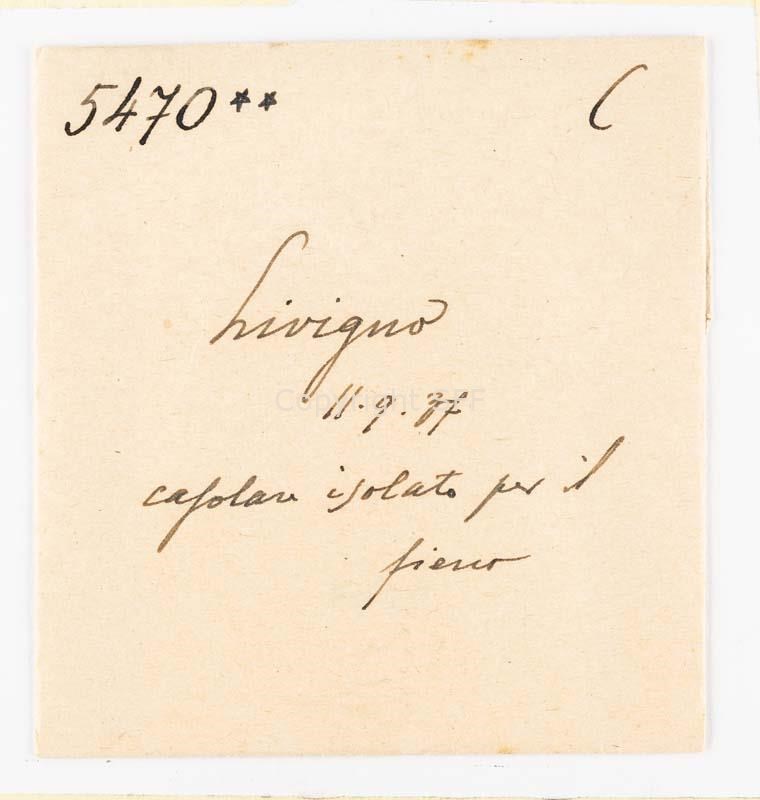 5470** C
Livigno
11.9.37
casolare isolato per il
fieno